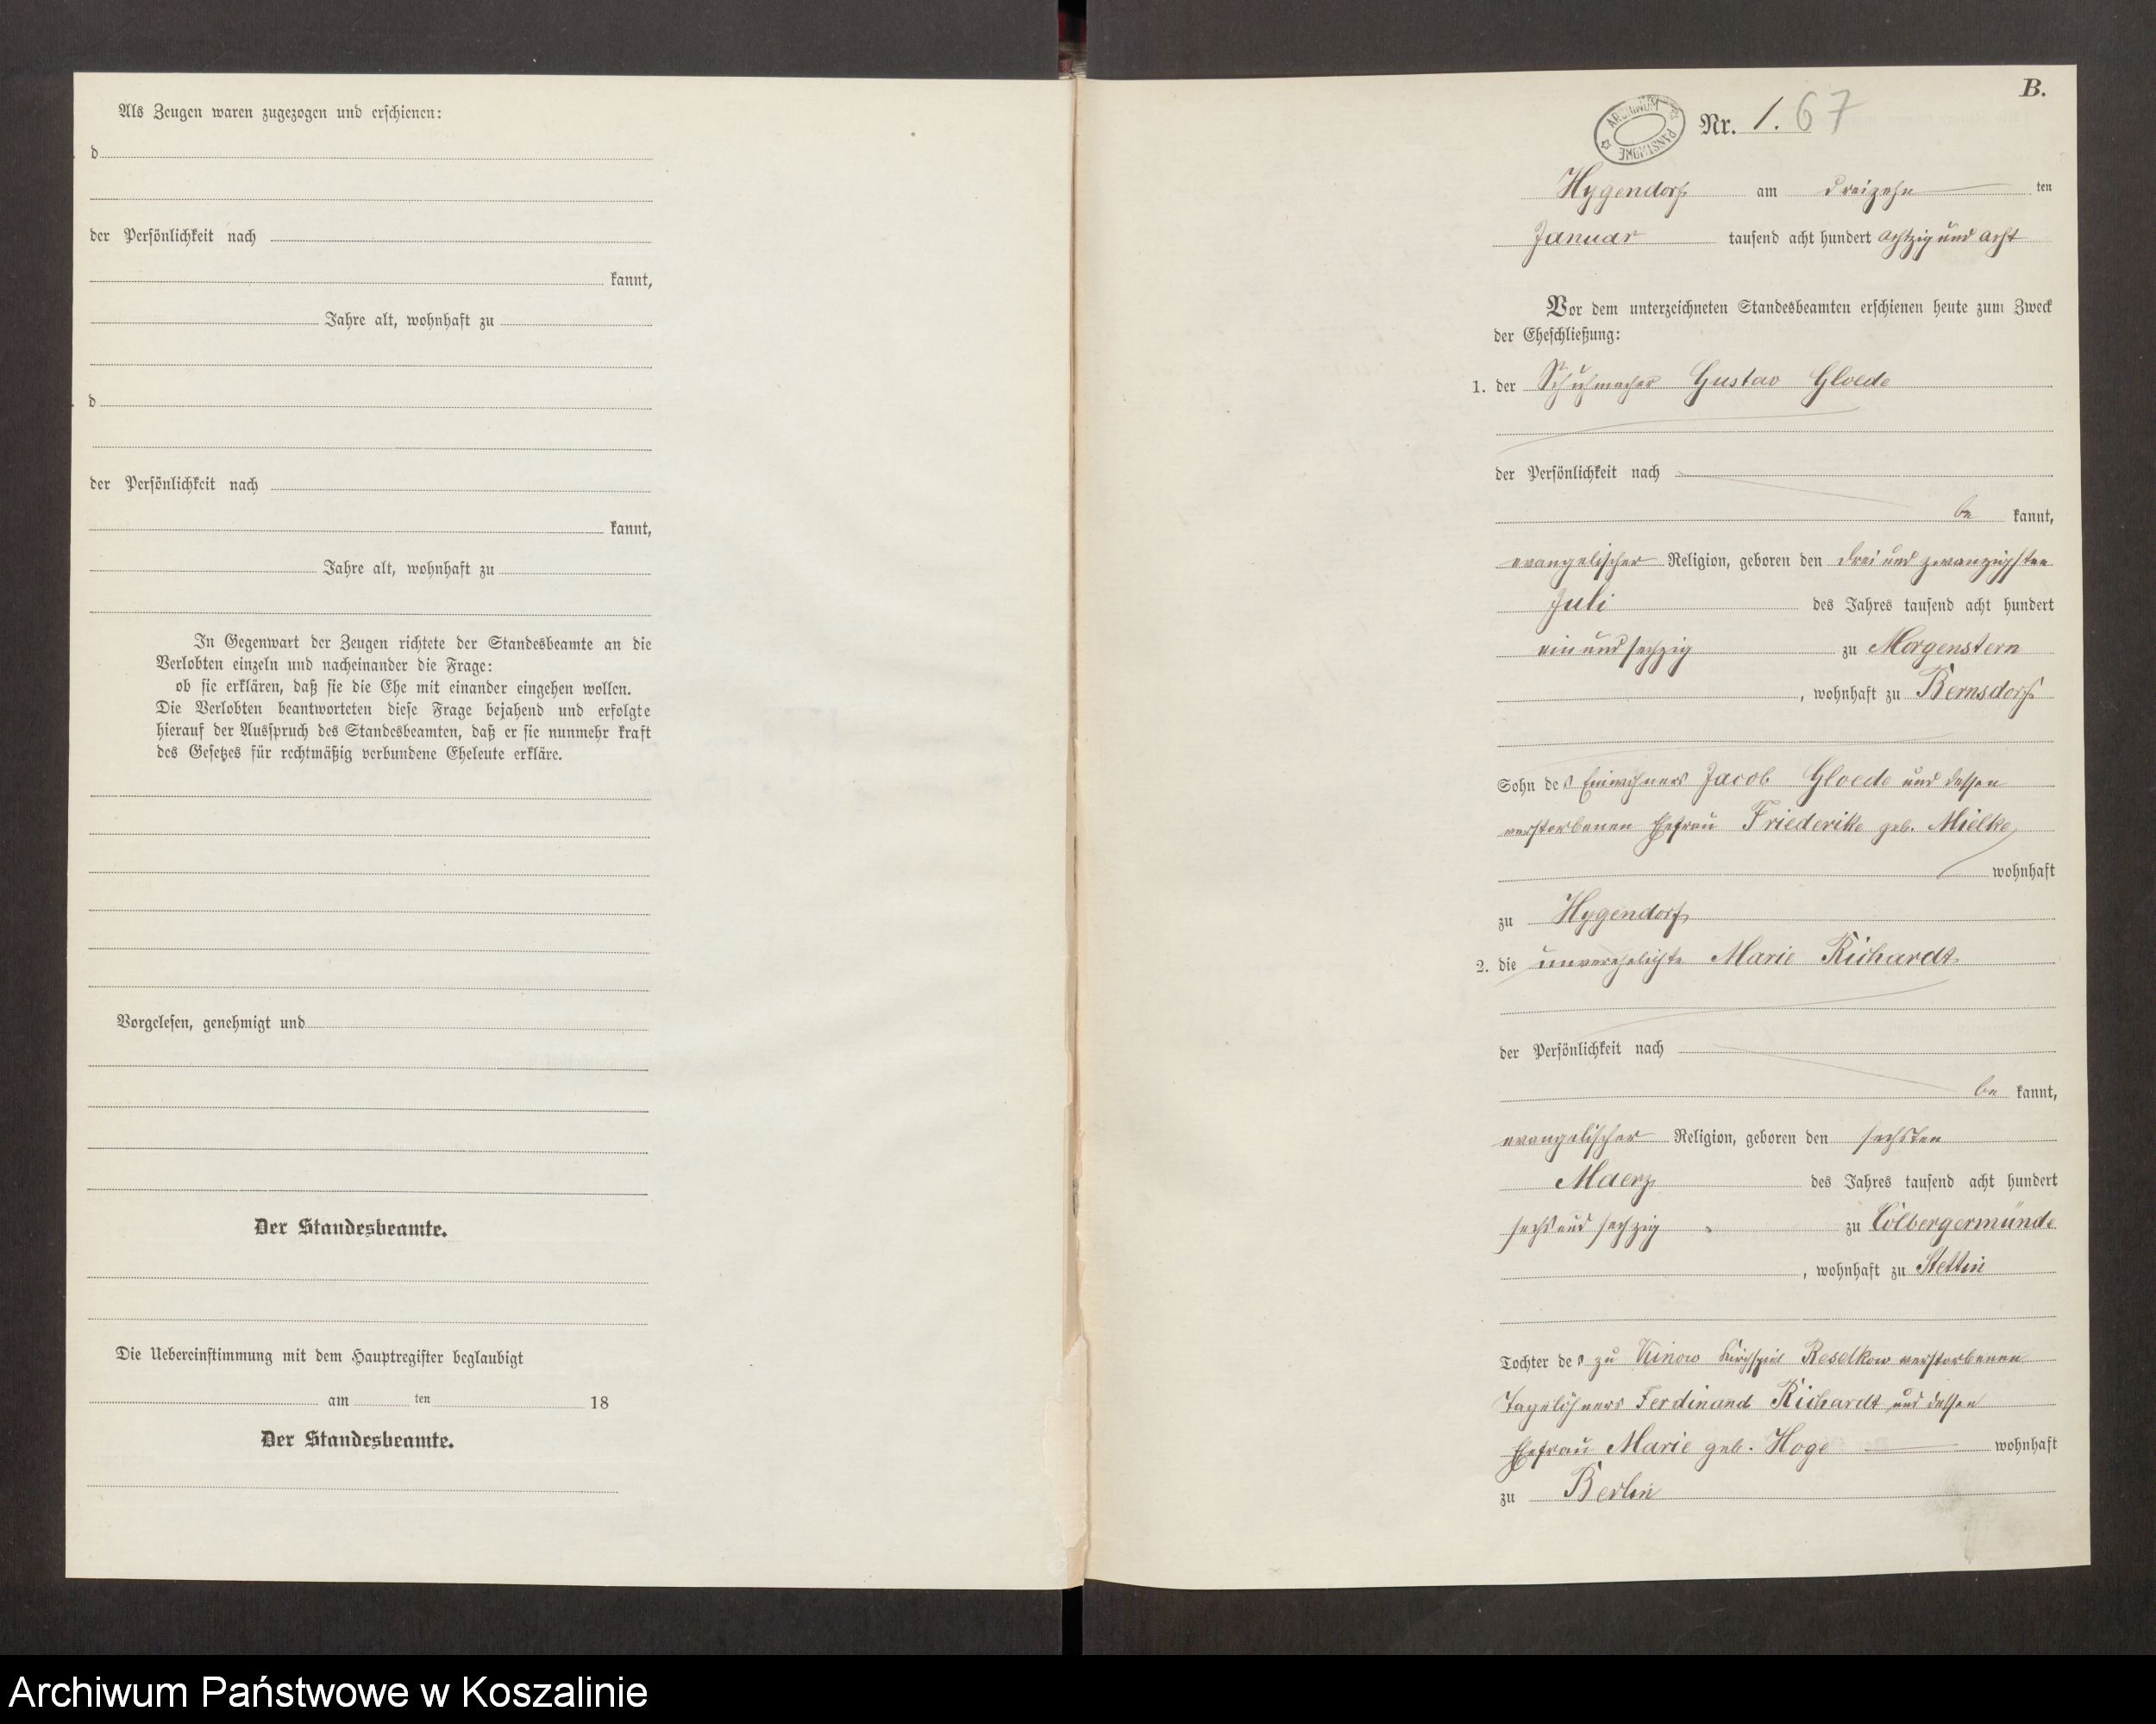 Als Zeugen waren zugezogen und erschienen:
d
der Persönlichkeit nach
kannt,
Jahre alt, wohnhaft zu
d
der Persönlichkeit nach
kannt,
Jahre alt, wohnhaft zu
In Gegenwart der Zeugen richtete der Standesbeamte an die
Verlobten einzeln und nacheinander die Frage:
ob sie erklären, daß sie die Ehe mit einander eingehen wollen.
Die Verlobten beantworteten diese Frage bejahend und erfolgte
hierauf der Ausspruch des Standesbeamten, daß er sie nunmehr kraft
des Gesetzes für rechtmäßig verbundene Eheleute erkläre.
Vorgelesen, genehmigt und
Der Standesbeamte.
Die Uebereinstimmung mit dem Hauptregister beglaubigt
am ten 18
Der Standesbeamte.
B.
ARCHIWUM PAŃSTWOWE
Nr. 1. 67
Hygendorf am dreizehn ten
Januar tausend acht hundert achtzig und acht
Vor dem unterzeichneten Standesbeamten erschienen heute zum Zweck
der Eheschließung:
1. der Schuhmacher Gustav Gloede
der Persönlichkeit nach
be kannt,
evangelischer Religion, geboren den drei und zwanzigsten
Juli des Jahres tausend acht hundert
ein und sechzig zu Morgenstern
, wohnhaft zu Bernsdorf
Sohn des Einwohners Jacob Gloede und dessen
verstorbenen Ehefrau Friederike geb. Mielke,
wohnhaft
zu Hygendorf
2. die unverehelichte Marie Richardt
der Persönlichkeit nach
be kannt,
evangelischer Religion, geboren den sechsten
Maerz des Jahres tausend acht hundert
sechs und sechzig zu Colbergermünde
, wohnhaft zu Stettin
Tochter des zu Kirchspiel Reselkow verstorbenen
Tagelöhners Ferdinand Richardt und dessen
Ehefrau Marie geb. Hoge wohnhaft
zu Berlin
Archiwum Państwowe w Koszalinie